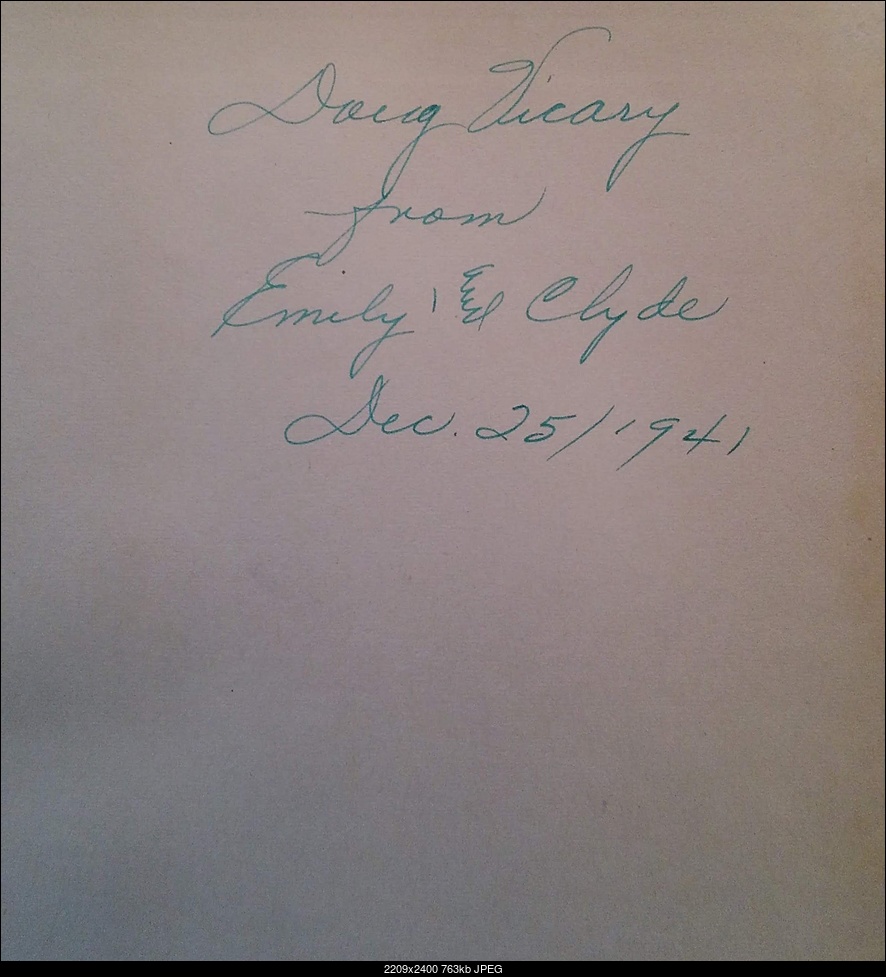 Doug Vicary
from
Emily & Clyde
Dec. 25/1941
2209x2400 763kb JPEG